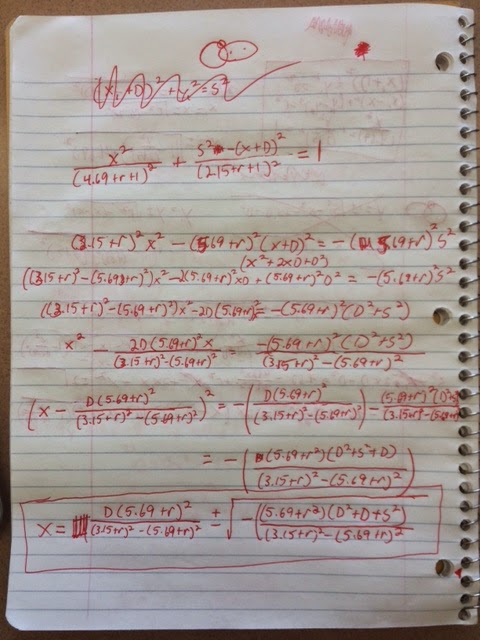 (x + D)² + y² = S²
x²/(4.69+r+1)² + S² - (x+D)²/(2.15+r+1)² = 1
(3.15+r)² x² - (5.69+r)² (x+D)² = -(5.69+r)² S²
(x²+2xD+D²)
((3.15+r)² - (5.69+r)²)x² - 2(5.69+r)² xD + (5.69+r)² D² = -(5.69+r)² S²
((3.15+r)² - (5.69+r)²)x² - 2D(5.69+r)² = -(5.69+r)² (D²+S²)
x² - 2D(5.69+r)² x/(3.15+r)² - (5.69+r)² = -(5.69+r)² (D²+S²)/(3.15+r)² - (5.69+r)²
(x - D(5.69+r)²/(3.15+r)² - (5.69+r)²)² = -(D(5.69+r)²/(3.15+r)² - (5.69+r)²) - (5.69+r)² (D²+S
= -((5.69+r²)(D²+S²+D)/(3.15+r)² - (5.69+r)²)
x = D(5.69+r)²/(3.15+r)² - (5.69+r)² ± √-((5.69+r²)(D²+D+S²)/(3.15+r)² - (5.69+r)²)